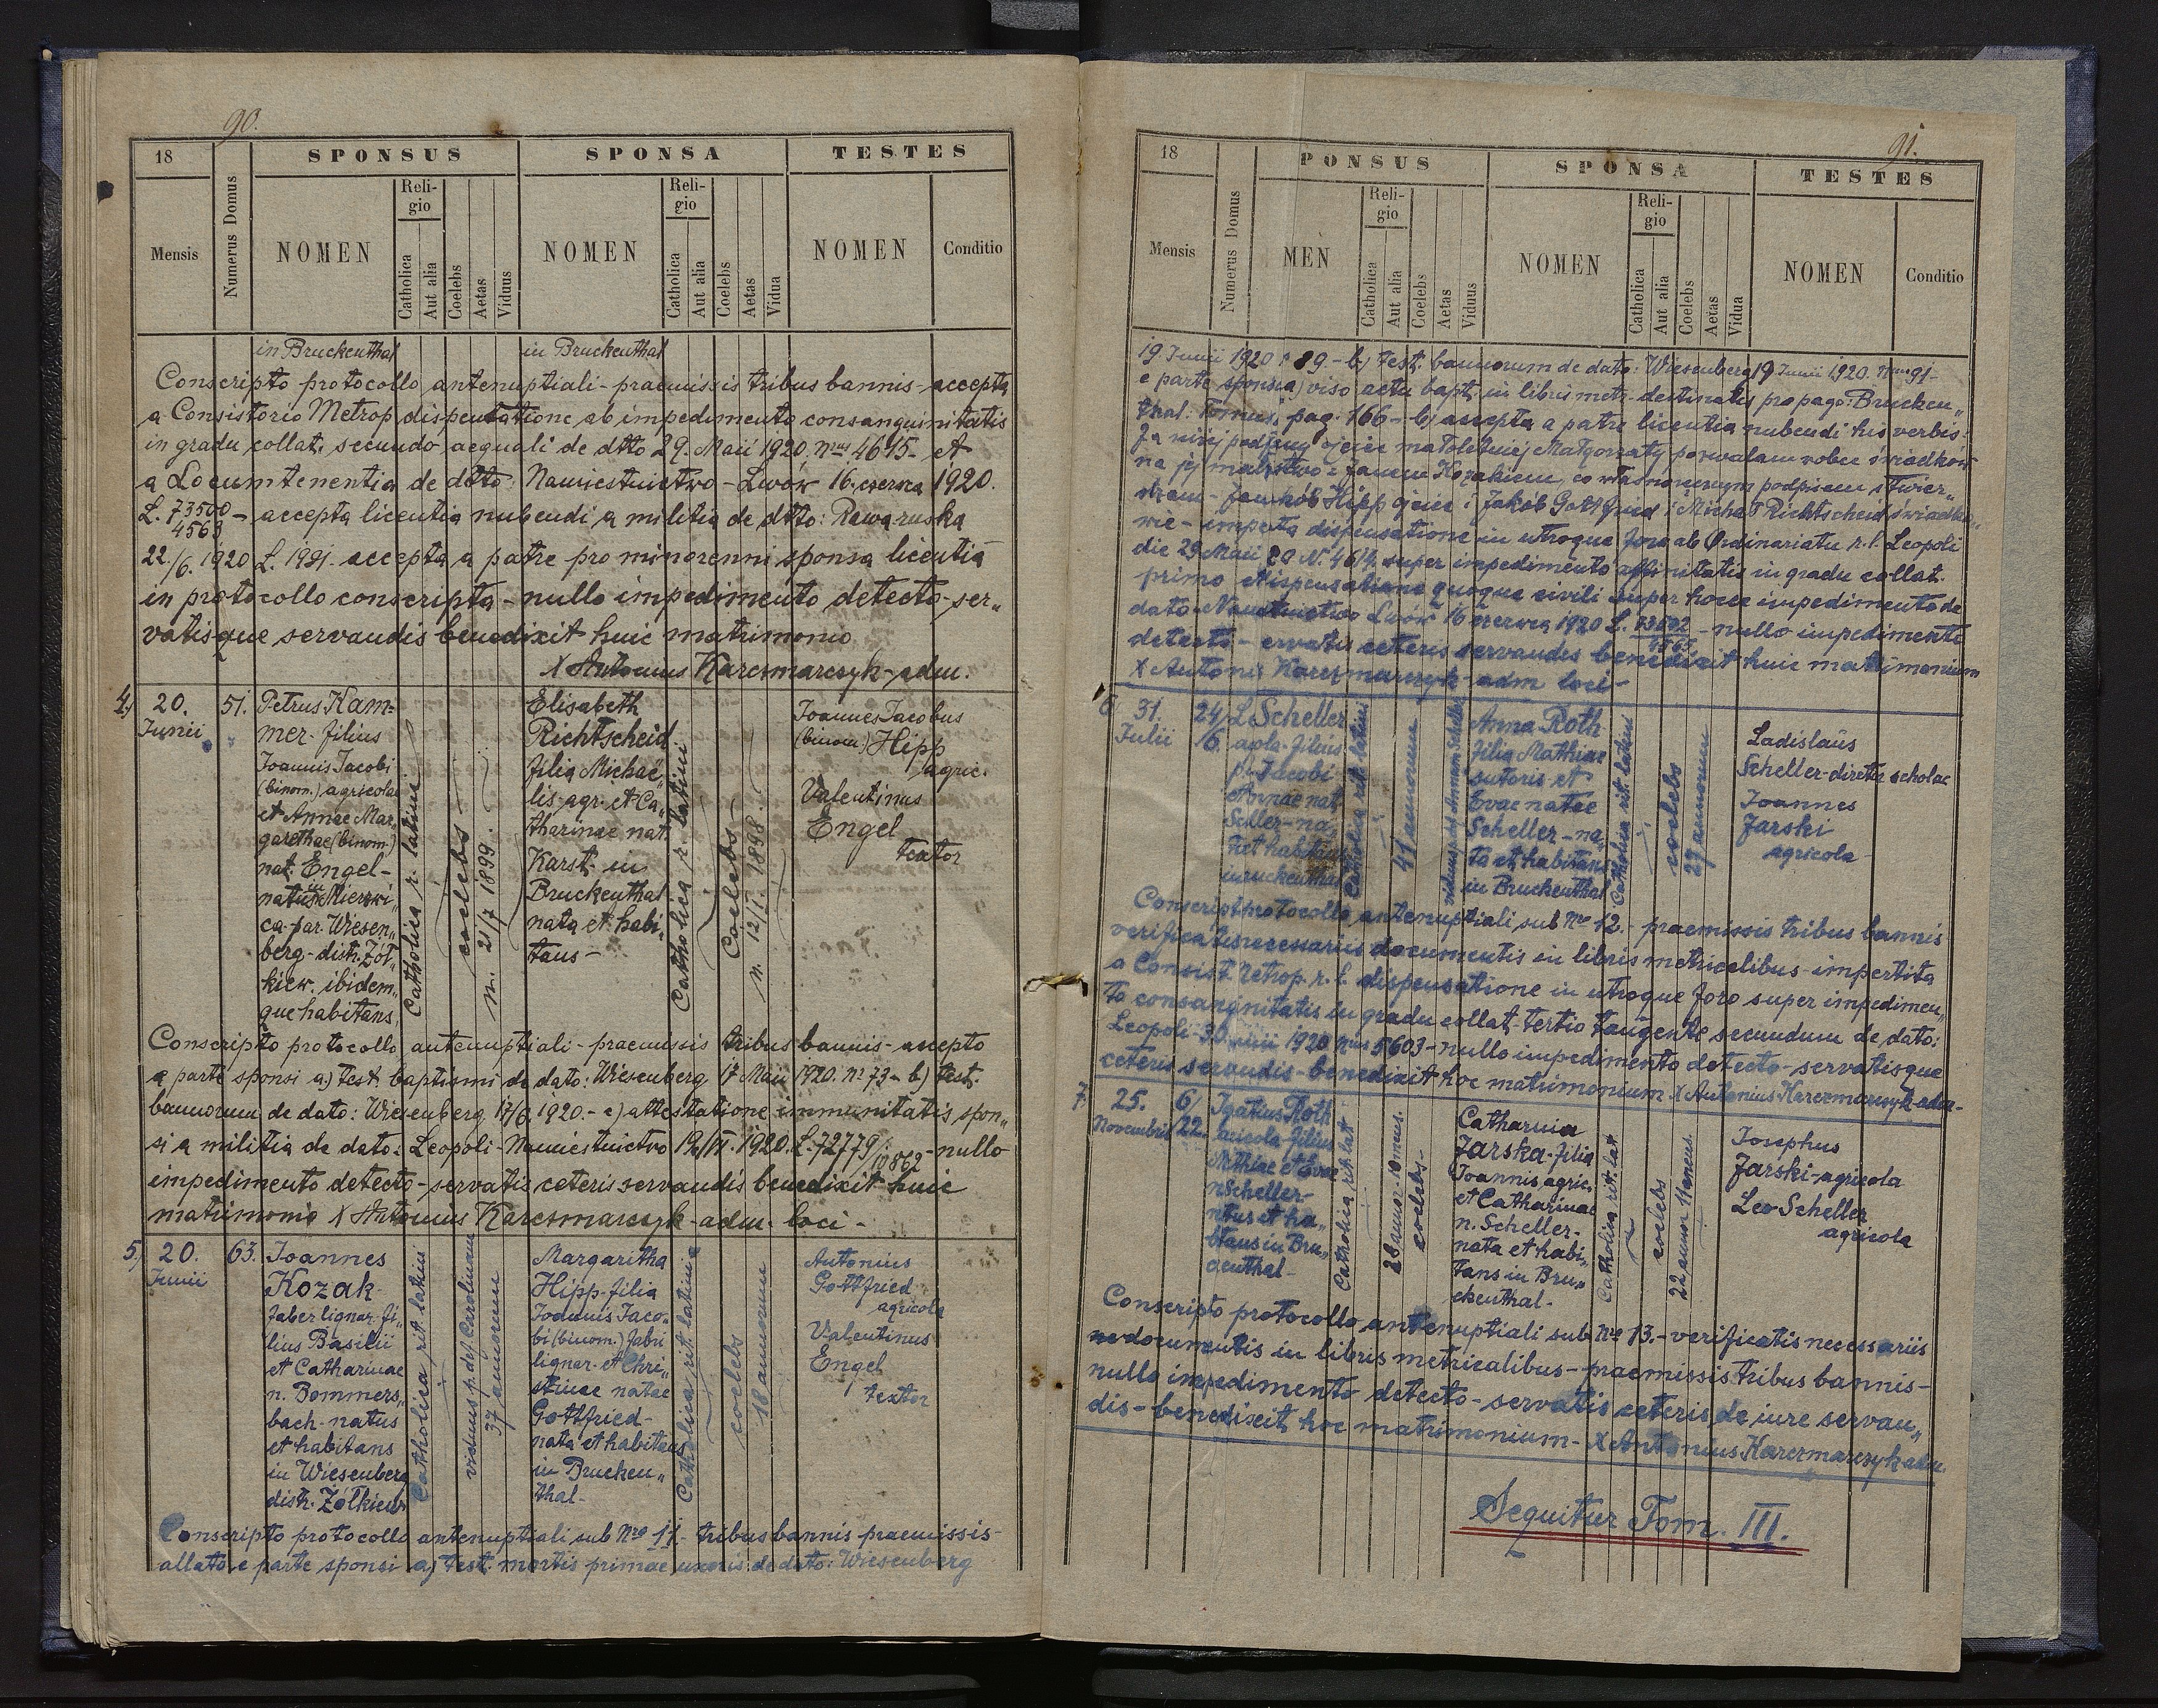 90.
18
Mensis
Numerus Domus
SPONSUS
NOMEN
Reli-
gio
Catholica
Aut alia
Coelebs
Aetas
Viduus
SPONSA
NOMEN
Reli-
gio
Catholica
Aut alia
Coelebs
Aetas
Vidua
TESTES
NOMEN
Conditio
in Bruckenthal
in Bruckenthal
Conscripto protocollo antenuptiali - praemissis tribus bannis - accepta
a Consistorio Metrop. dispensatione ab impedimento consanguinitatis
in gradu collat. secundo aequali de dtto 29. Maii 1920. nrus 4615 - et
a Locumtenentia de dtto: Namiestnictwo - Lwów 16. czerwca 1920.
L. 73500/4563 - accepta licentia nubendi a militia de dtto: Rawa-ruska
22./6. 1920 L. 1991. accepta a patre pro minorenni sponsa licentia
in protocollo conscripta - nullo impedimento detecto - ser„
vatisque servandis benedixit huic matrimonio
X Antonius Karczmarczyk - adm.
4.)
20.
Junii
51.
Petrus Kam-
mer - filius
Joannis Jacobi
(binom.) agricolae
et Annae Mar„
garethae (binom.)
nat. Engel -
natus in Mierzwi„
ca - par. Wiesen„
berg - distr. Żół„
kiew. ibidem„
que habitans.
Catholica r. latini
coelebs
n. 21/7 1899.
Elisabeth
Richtscheid
filia Michaë„
lis - agr. et Ca„
tharinae nat.
Karst. in
Bruckenthal
nata et habi„
tans -
Catholica r. latini
Coelebs
n. 12/1. 1898.
Joannes Jacobus
(binom.) Hipp
agric.
Valentinus
Engel
textor
Conscripto protocollo antenuptiali - praemissis tribus bannis - accepto
a parte sponsi a.) test. baptismi de dato: Wiesenberg 17 Maii 1920. no 73 - b) test.
bannorum de dato: Wiesenberg 17/6. 1920. - c) attestatione immunitatis spon„
si a militia de dato: Leopoli - Namiestnictwo 19/VI. 1920. L. 72779/10862 - nullo
impedimento detecto - servatis ceteris servandis benedixit huic
matrimonio X Antonius Karczmarczyk - adm. loci -
5.)
20.
Junii
63.
Joannes
Kozak -
faber lignar. fi„
lius Basilii
et Catharinae
n. Bommers„
bach - natus
et habitans
in Wiesenberg
distr. Żółkiew
Catholica rit. latini
viduus p. def. Carolinam
37 annorum
Margaritha
Hipp - filia
Joannis Jaco„
bi (binom.) fabri
lignar. et Chri„
stinae natae
Gottfried -
nata et habitans
in Brucken„
thal -
Catholica rit. latini
coelebs
18 annorum
Antonius
Gottfried
agricola
Valentinus
Engel
textor
Conscripto protocollo antenuptiali sub Nro 11 - tribus bannis praemissis -
allato e parte sponsi a) test. mortis primae uxoris de dato: Wiesenberg
91.
18
Mensis
Numerus Domus
PONSUS
MEN
Reli-
gio
Catholica
Aut alia
Coelebs
Aetas
Viduus
SPONSA
NOMEN
Reli-
gio
Catholica
Aut alia
Coelebs
Aetas
Vidua
TESTES
NOMEN
Conditio
19 Junii 1920 89 - b) test. bannorum de dato: Wiesenberg 19 Junii 1920. 91 -
e parte sponsae) viso actu bapt. in libris metr. destinatis pro pago: Brucken„
thal: Tomus, pag. 166 - b) accepta a patre licentia nubendi his verbis:
Ja niżej podpisany ojciec małoletniej Małgorzaty pozwalam wobec świadków
na jej małżeństwo z Janem Kozakiem, co własnoręcznym podpisem stwier„
dzam - Jan Jakób Hipp ojciec i Jakób Gottfried i Michał Richtscheid świadko„
wie - imperta dispensatione in utroque foro ab Ordinariatu r. l. Leopoli
die 29 Maii 20 N. 4614. super impedimento affinitatis in gradu collat.
primo dispensatione quoque civili super hocce impedimento de
dato: Namiestnictwo Lwów 16 czerwca 1920 L. - nullo impedimento
detecto - servatis ceteris servandis benedixit huic matrimonium
X Antoni Karczmarczyk adm loci -
6
31.
Julii
24/
6.
L Scheller
filius
p. Jacobi
Annae nat.
na„
et habitans
Catholica rit. latini
41 annorum
Anna Roth
filia Mathiae
sutoris et
Evae natae
Scheller - na„
ta et habitans
in Bruckenthal
Catholica rit. latini
coelebs
27 annorum
Ladislaus
Scheller - director scholae
Joannes
Jarski
agricola
Conscript protocollo antenuptiali sub Nro 12. - praemissis tribus bannis
verificatis necessariis documentis in libris metricalibus - impertita
a Consist. r. l. dispensatione in utroque foro super impedimen„
to consanguinitatis in gradu collat. tertio tangente secundum de dato:
Leopoli 30 1920 5603 - nullo impedimento detecto - servatisque
ceteris servandis - benedixit hoc matrimonium. X Antonius Karczmarczyk adm -
7.
25.
Novembris
6/
22.
Roth
filius
et Evae
Scheller -
et ha„
in Bru„
Catholica rit. lat
28 annor. 10 mens.
coelebs -
Catharina
Jarska - filia
Joannis agric.
et Catharinae
n. Scheller -
nata et habi„
tans in Bru„
ckenthal -
Catholica rit. lat
coelebs
22 annor. 11 mens.
Josephus
Jarski - agricola
Leo Scheller
agricola
Conscripto protocollo antenuptiali sub Nro 13. - verificatis necessariis
documentis in libris metricalibus - praemissis tribus bannis -
nullo impedimento detecto - servatis ceteris de iure servan„
dis - benedixit hoc matrimonium - X Antonius Karczmarczyk adm.
Sequitur Tom. III.